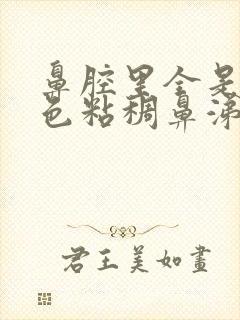 鼻腔里全是
色粘稠鼻涕
君王美如畫